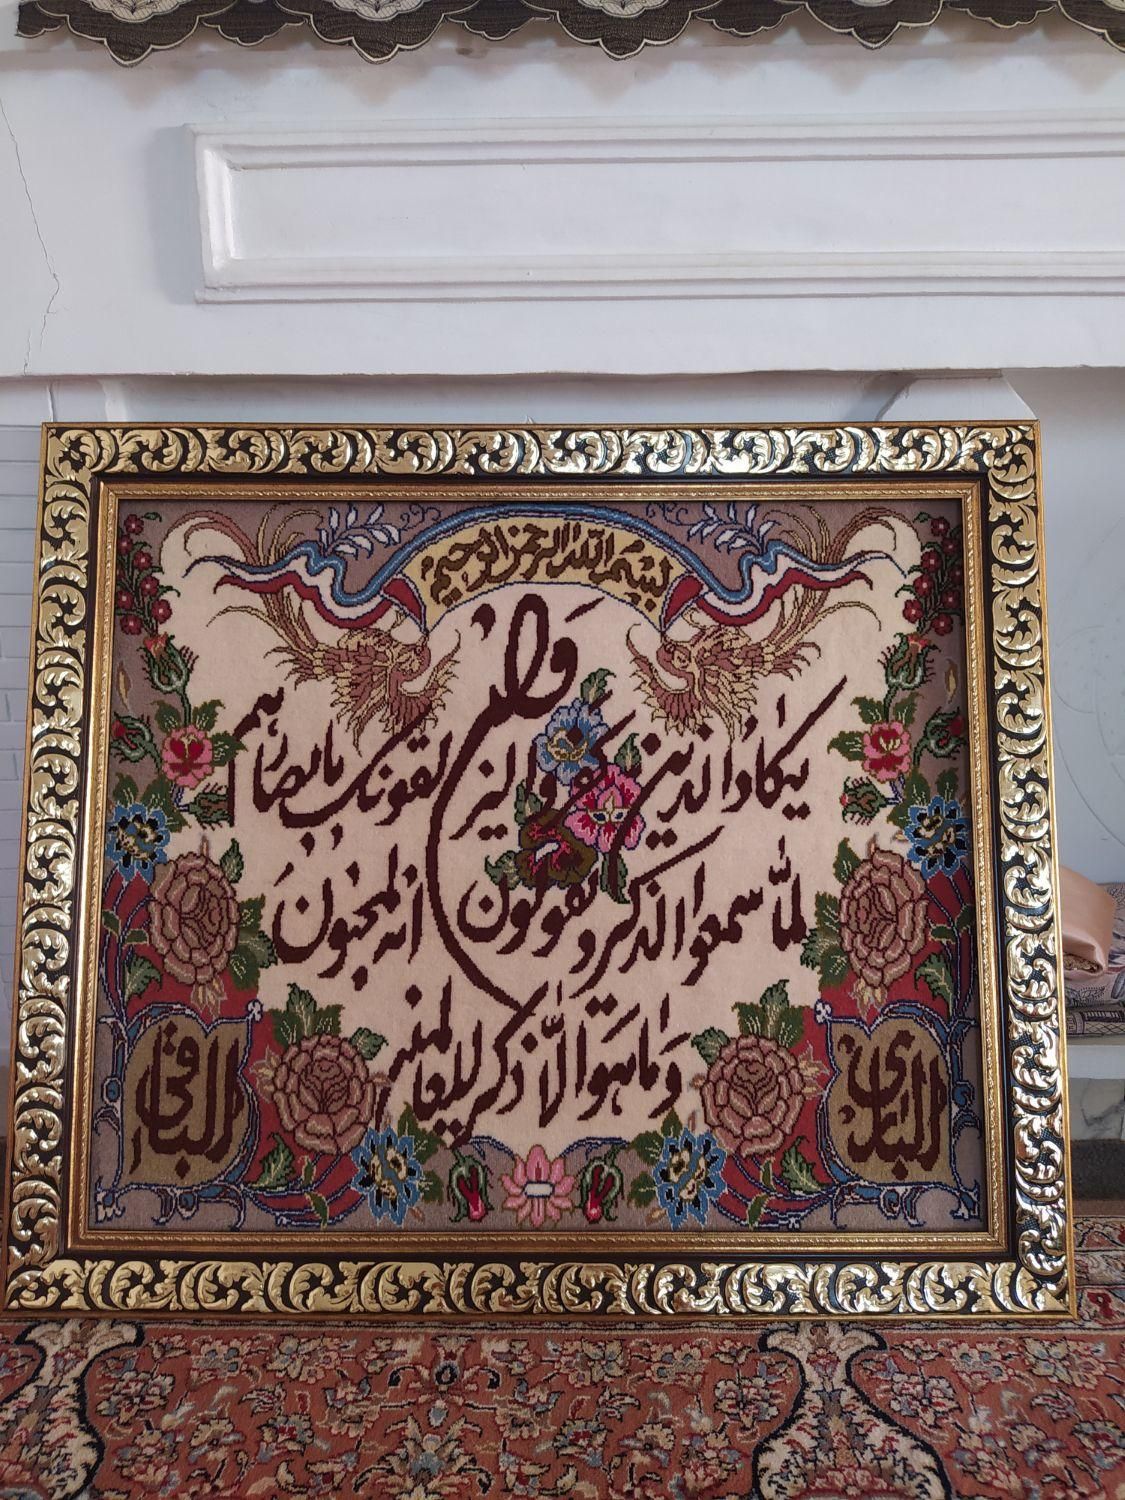 بسم الله الرحمن الرحیم
وان
یکاد الذین کفروا لیزلقونک بابصارهم
لما سمعوا الذکر و یقولون انه لمجنون
و ما هوا الا ذکر للعالمین
الباقی